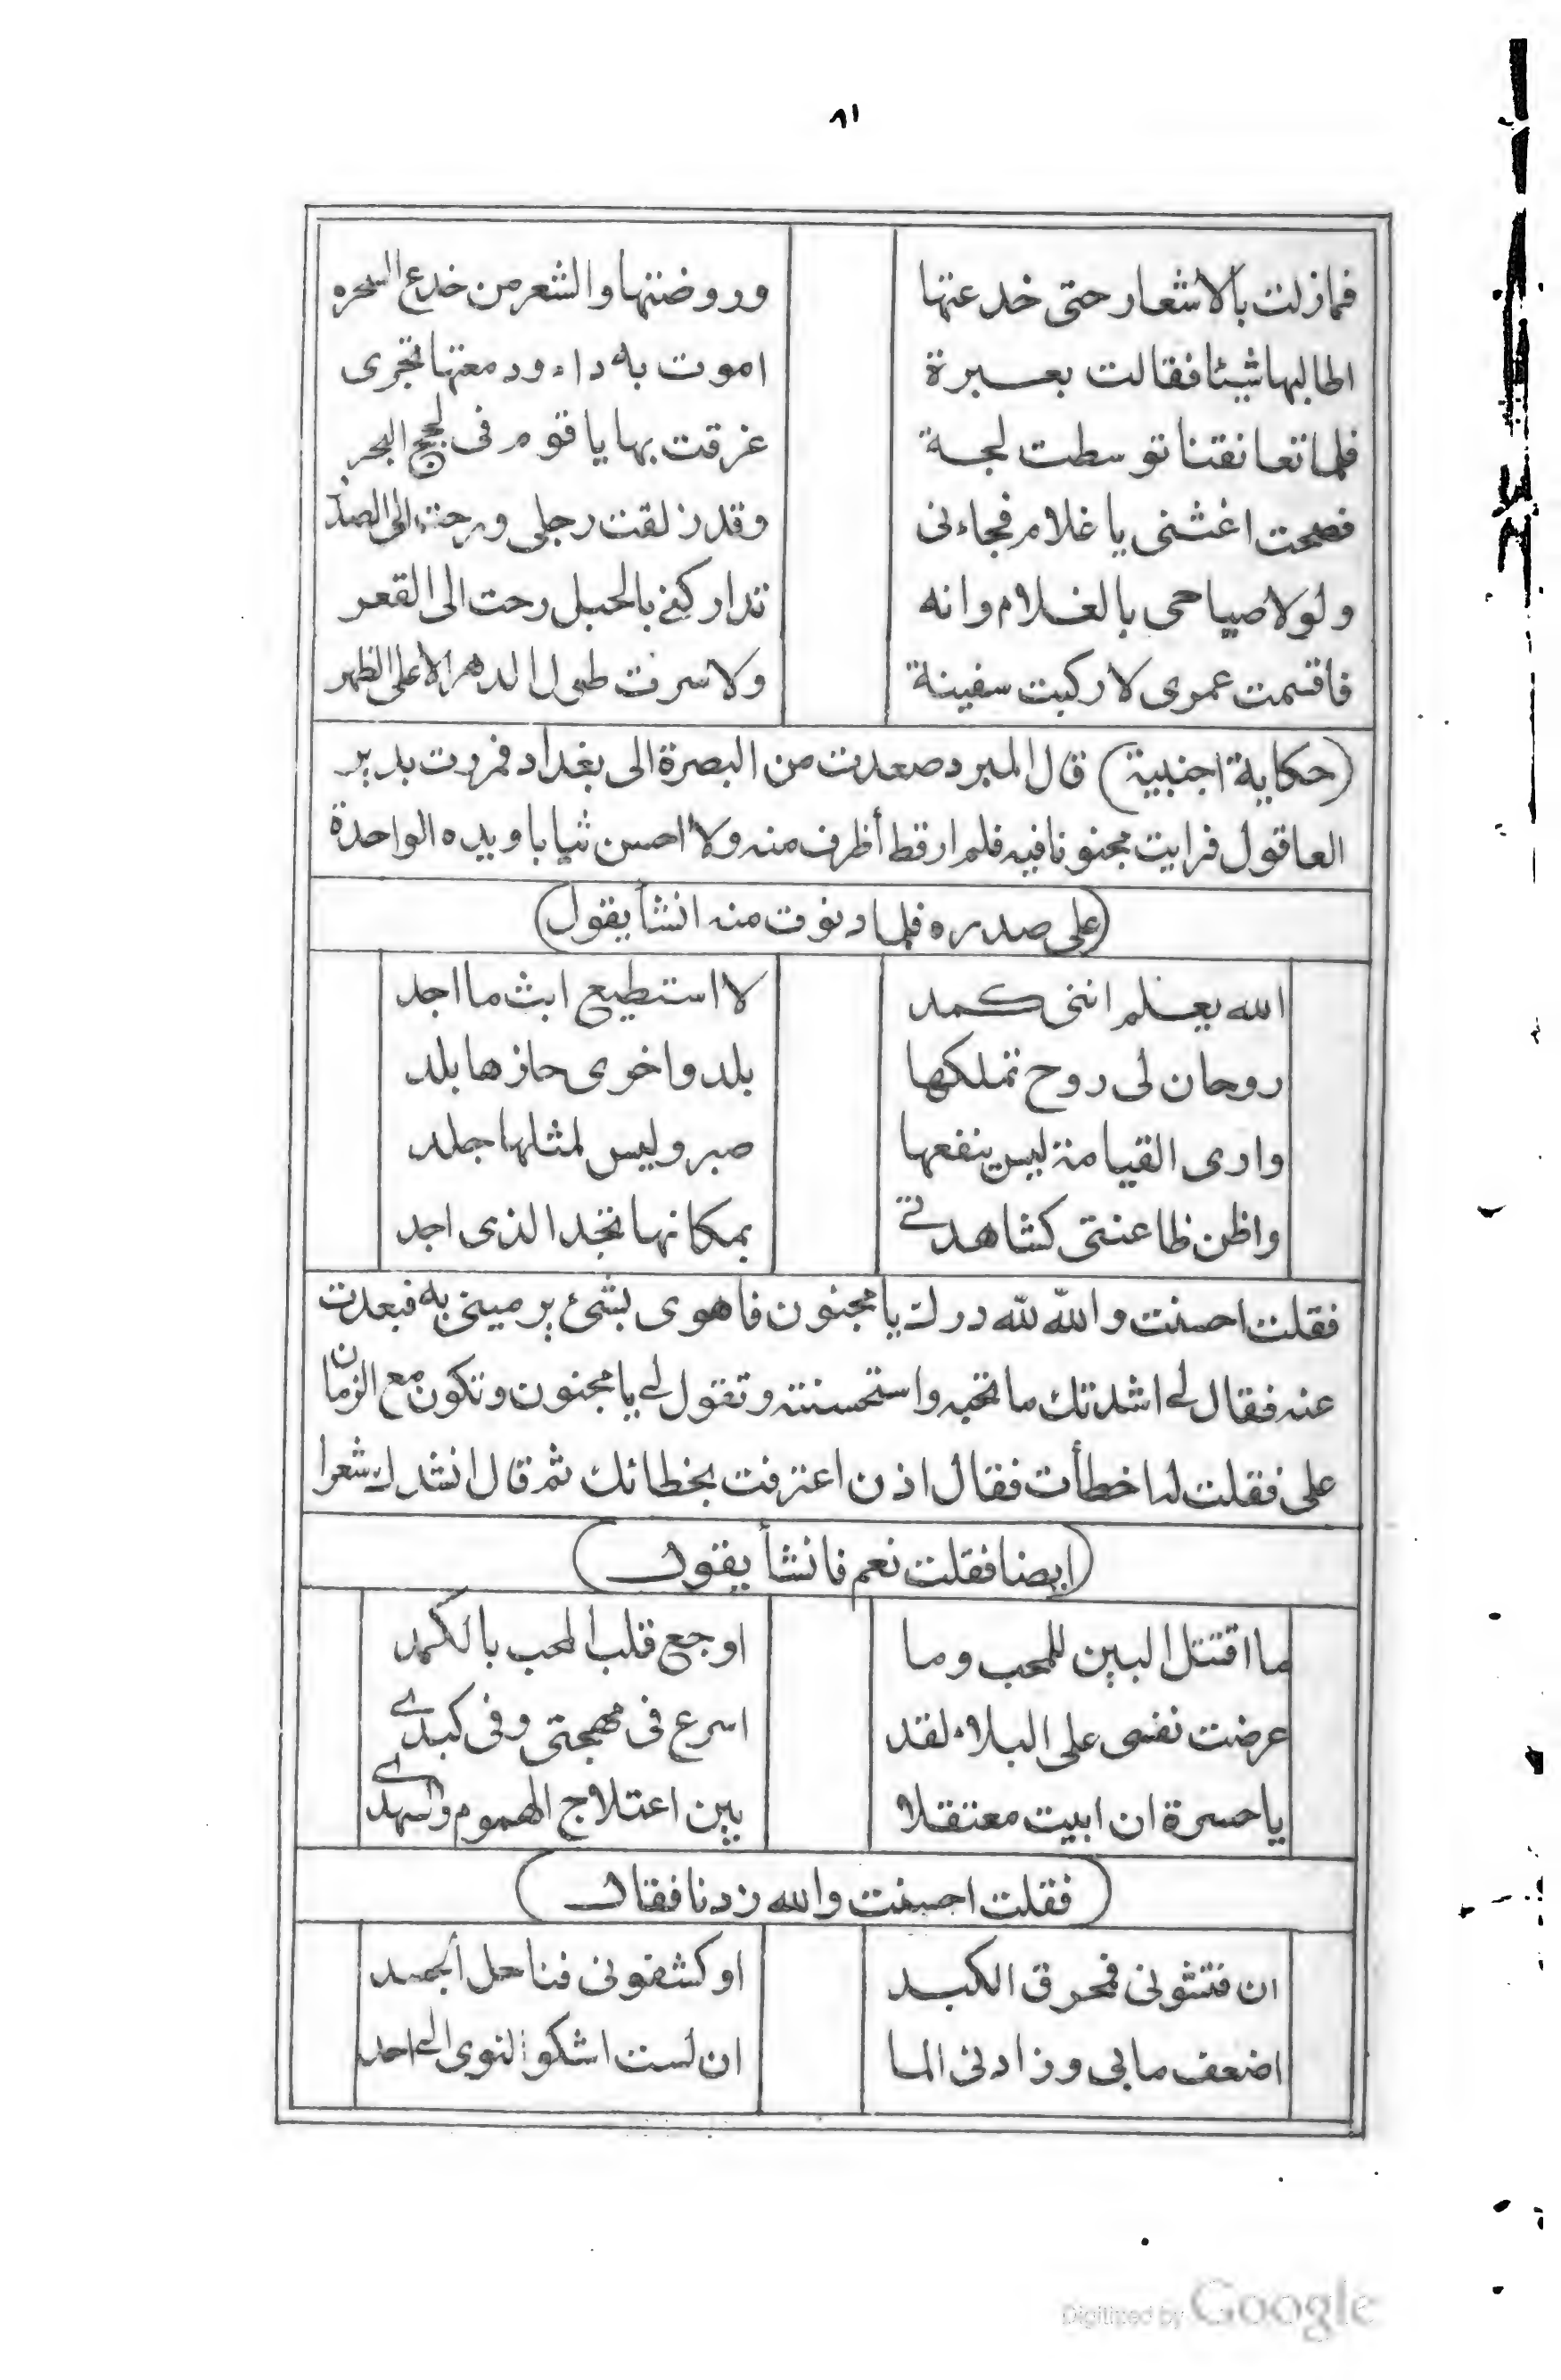 ٨١
فمازلت بالاشعار حتى خدعتها وروضتها والشعر من خدع السحره
اطالبها شيئا فقالت بعبرة اموت به داء ودمعتها تجرى
فلما تعانقتنا توسطت لجة غرقت بها يا قوم فى لجج البحر
فصحت اغثنى يا غلام فجاءنى وقد زلقت رجلى ورحت الى الصد
ولولا صياحى بالغلام وانه تداركنى بالحبل رحت الى القعر
فاقسمت عمرى لا ركبت سفينة ولا سرت طول الدهر الا على الظهر
(حكاية اجنبية) قال المبرد صعدت من البصرة الى بغداد فمررت بدير
العاقول فرايت مجنونا فيه فلم ار قط أظرف منه ولا احسن ثيابا وبيده الواحدة
(على صدره فلما دنوت منه انشأ يقول)
الله يعلم اننى كمد لا استطيع ابث ما اجد
روحان لى روح تملكها بلد واخرى حازها بلد
وارى القيامة ليس ينفعها صبر وليس لمثلها جلد
واظن ظاعنتى كشاهدتى بمكانها تجد الذى اجد
فقلت احسنت والله لله درك يا مجنون فاهوى بشئ يرمينى به فبعدت
عنه فقال لى انشدتك ما تحبه واستحسنته وتقول لى يا مجنون وتكون مع الزمان
على فقلت له اخطأت فقال اذن اعترفت بخطائك ثم قال انشدك شعرا
(ايضا فقلت نعم فانشأ يقول)
ما اقتتل البين للمحب وما اوجع قلب المحب بالكمد
عرضت نفسى على البلاء لقد اسرع فى مهجتى وفى كبدى
يا حسرة ان ابيت معتقلا بين اعتلاج الهموم والسهدى
(فقلت احسنت والله زدنا فقال)
ان فتشونى فمحرق الكبد او كشفونى فناحل الجسد
اضعف مابى وزادنى الما ان لست اشكو النوى الى احد
Digitized by Google